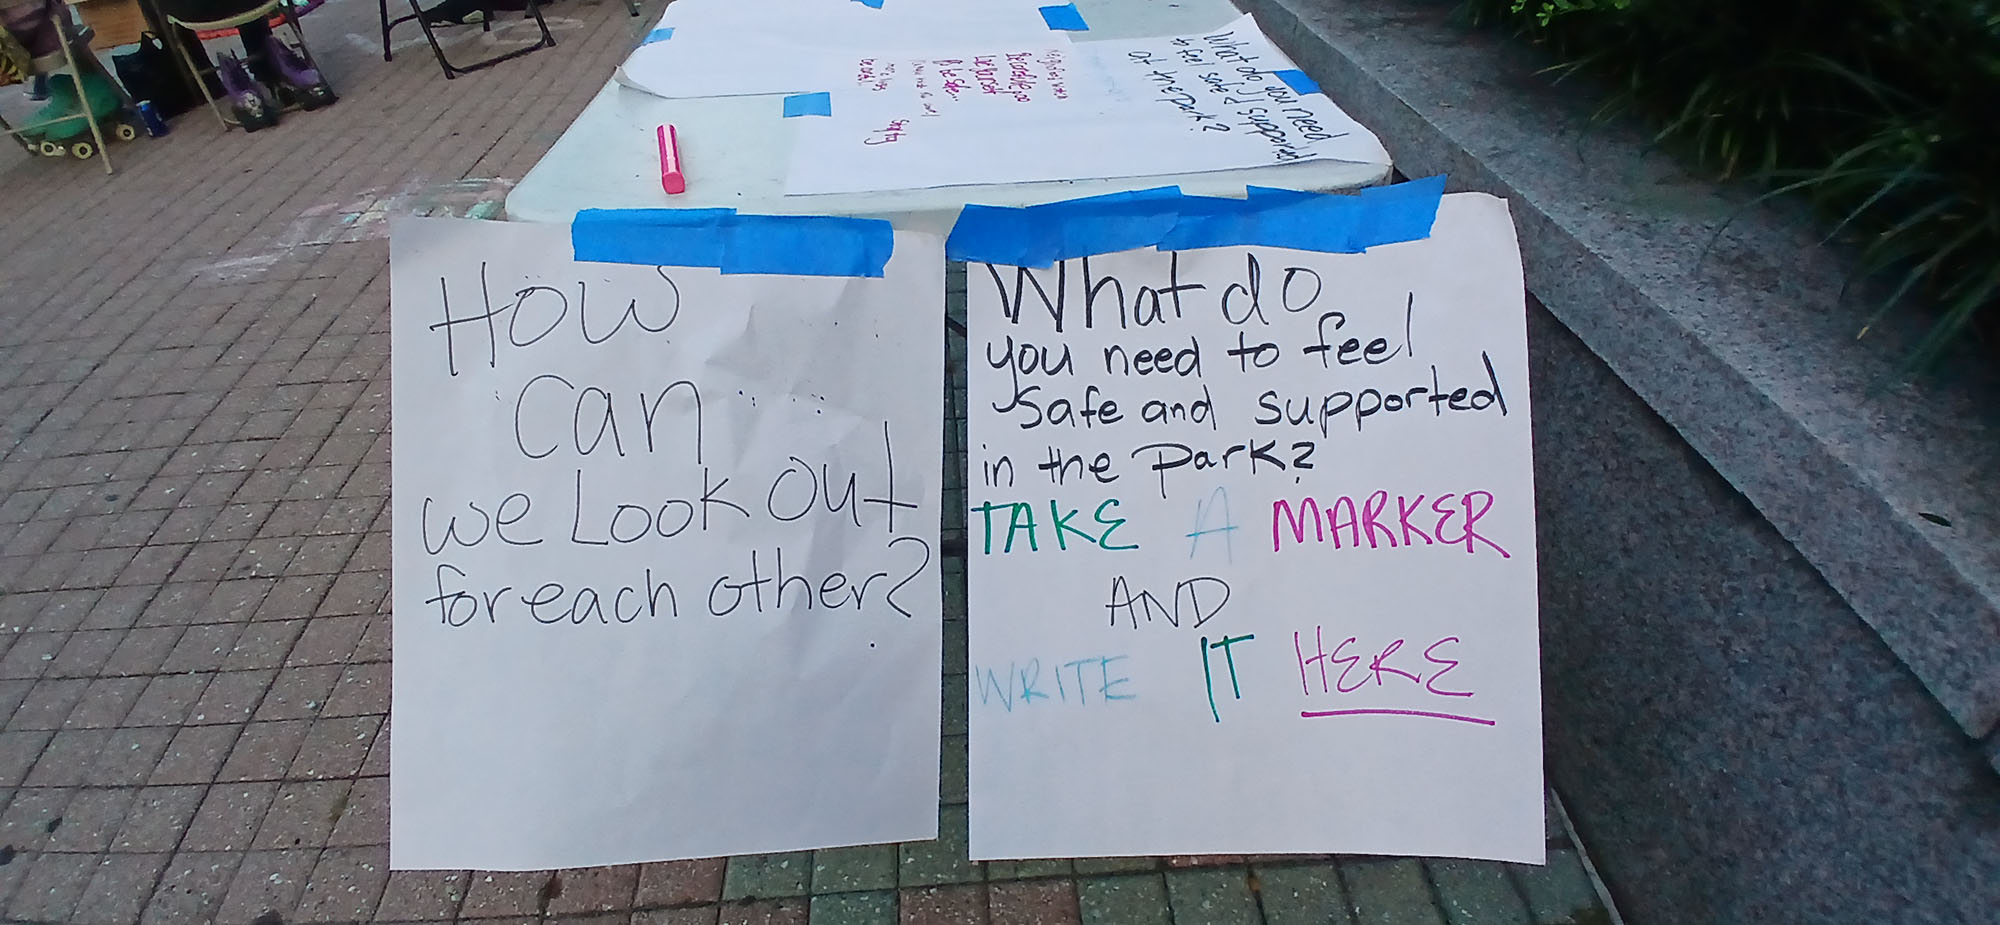 What do you need
to feel safe & supported
at the park?
How
can
we Look out
for each other?
What do
you need to feel
safe and supported
in the park?
TAKE A MARKER
AND
WRITE IT HERE